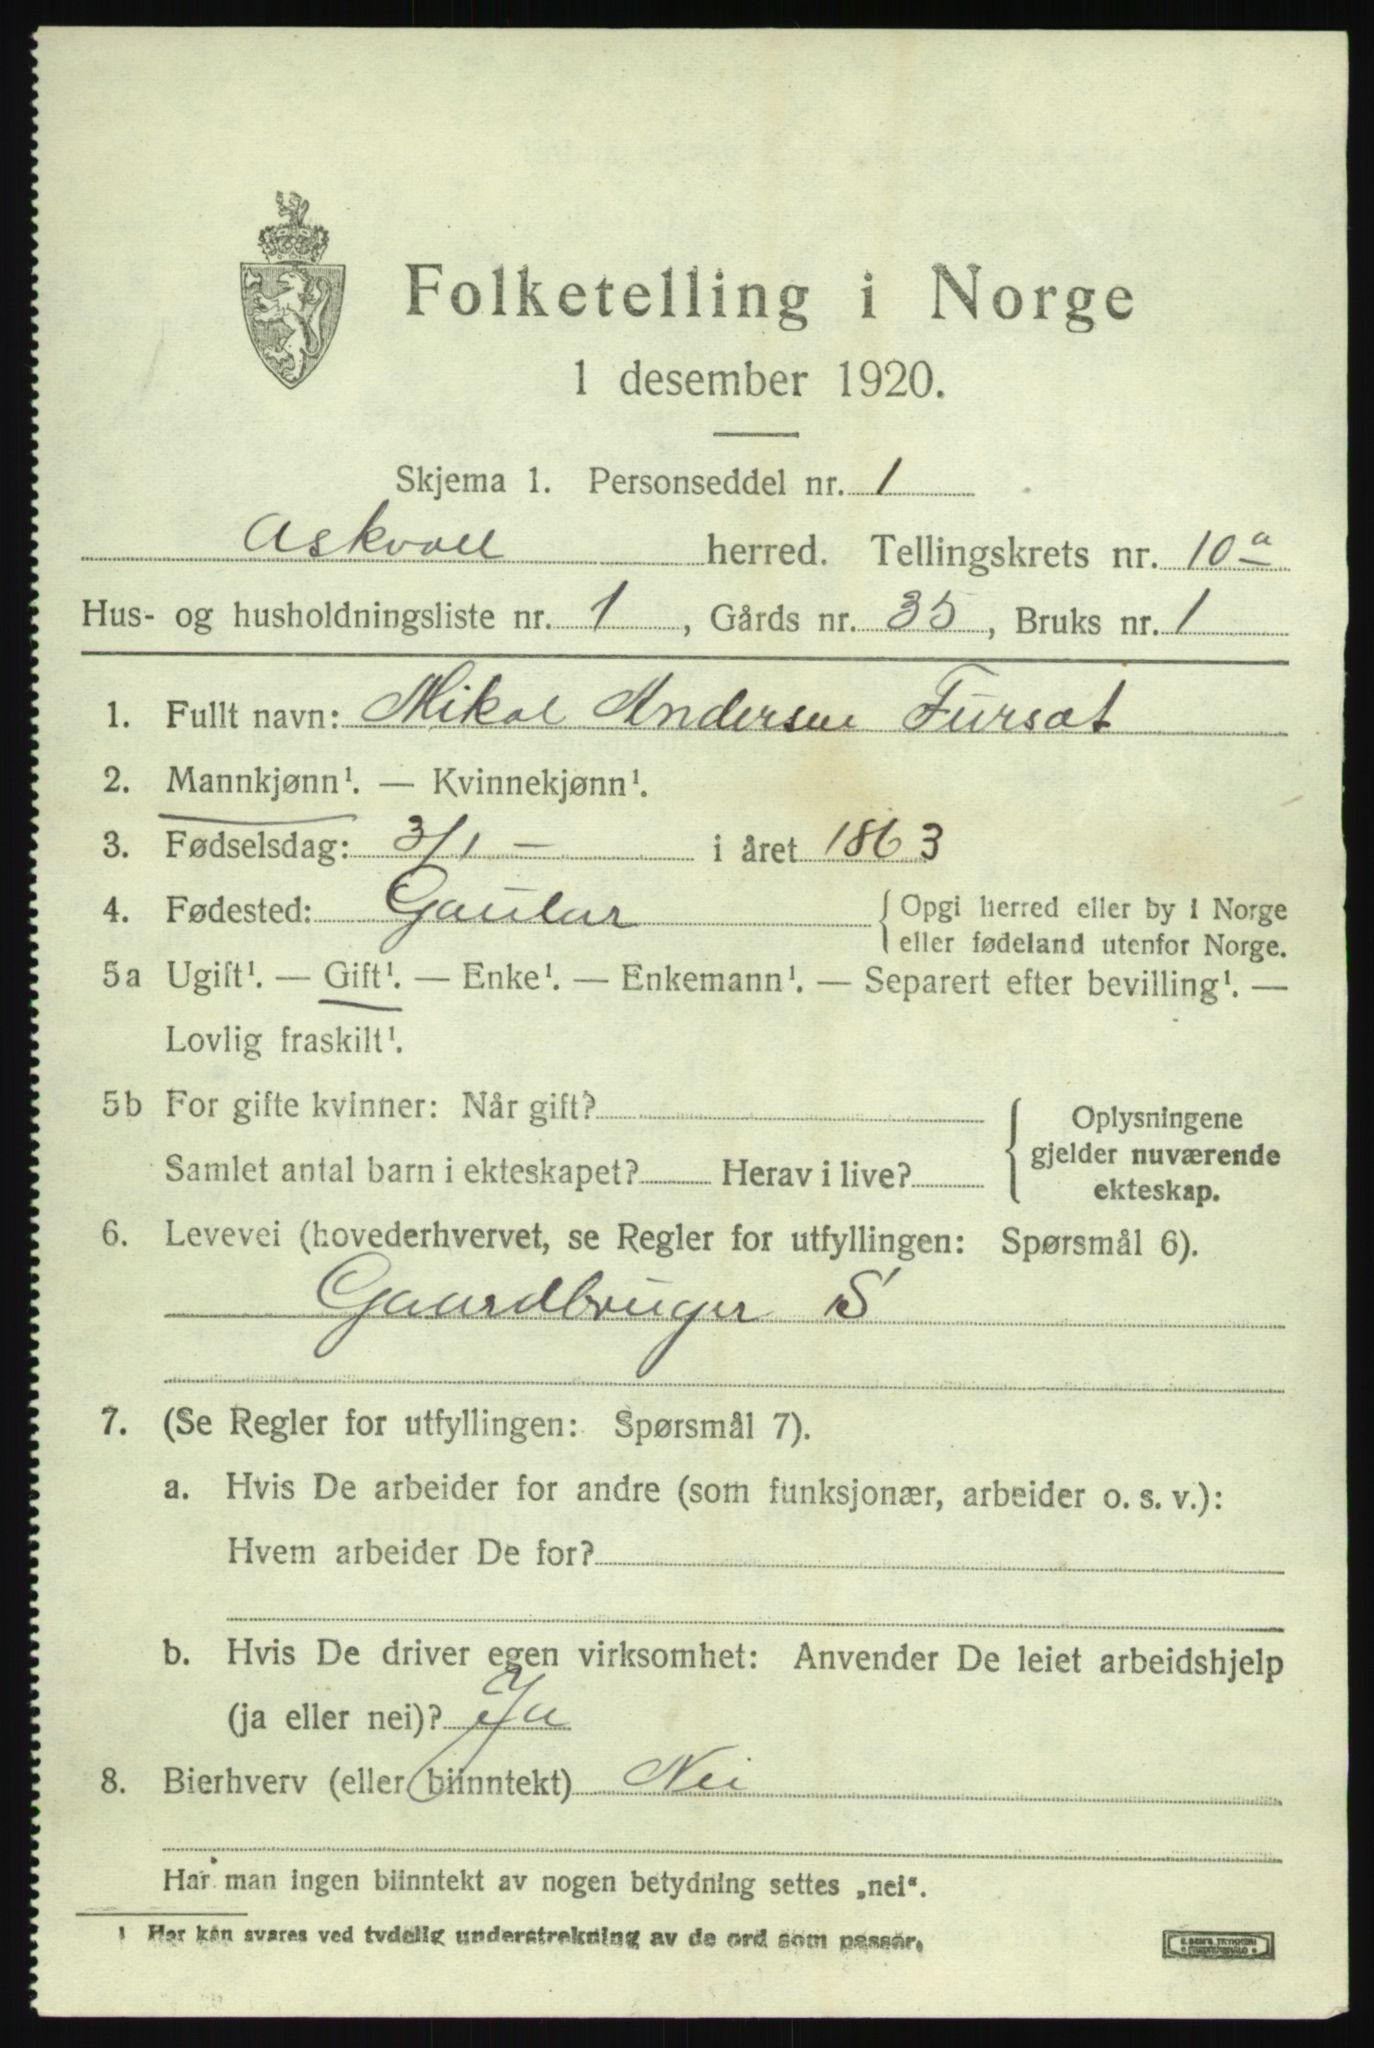 Folketelling i Norge
1 desember 1920.
Skjema 1. Personseddel nr. 1
Askvoll herred. Tellingskrets nr. 10 a
Hus- og husholdningsliste nr. 1, Gårds nr. 35, Bruks nr. 1
1. Fullt navn: Mikal Andersen Fursæt
2. Mannkjønn¹. — Kvinnekjønn¹.
3. Fødselsdag: 3/1 — i året 1863
4. Fødested: Gaular { Opgi herred eller by i Norge
eller fødeland utenfor Norge.
5a Ugift¹. — Gift¹. — Enke¹. — Enkemann¹. — Separert efter bevilling¹. —
Lovlig fraskilt¹.
5b For gifte kvinner: Når gift?
Samlet antal barn i ekteskapet? Herav i live?
{ Oplysningene
gjelder nuværende
ekteskap.
6. Levevei (hovederhvervet, se Regler for utfyllingen: Spørsmål 6).
Gaardbruger S
7. (Se Regler for utfyllingen: Spørsmål 7).
a. Hvis De arbeider for andre (som funksjonær, arbeider o. s. v.):
Hvem arbeider De for?
b. Hvis De driver egen virksomhet: Anvender De leiet arbeidshjelp
(ja eller nei)? Ja
8. Bierhverv (eller biinntekt) Nei
Har man ingen biinntekt av nogen betydning settes „nei“.
1 Her kan svares ved tydelig understrekning av de ord som passer.